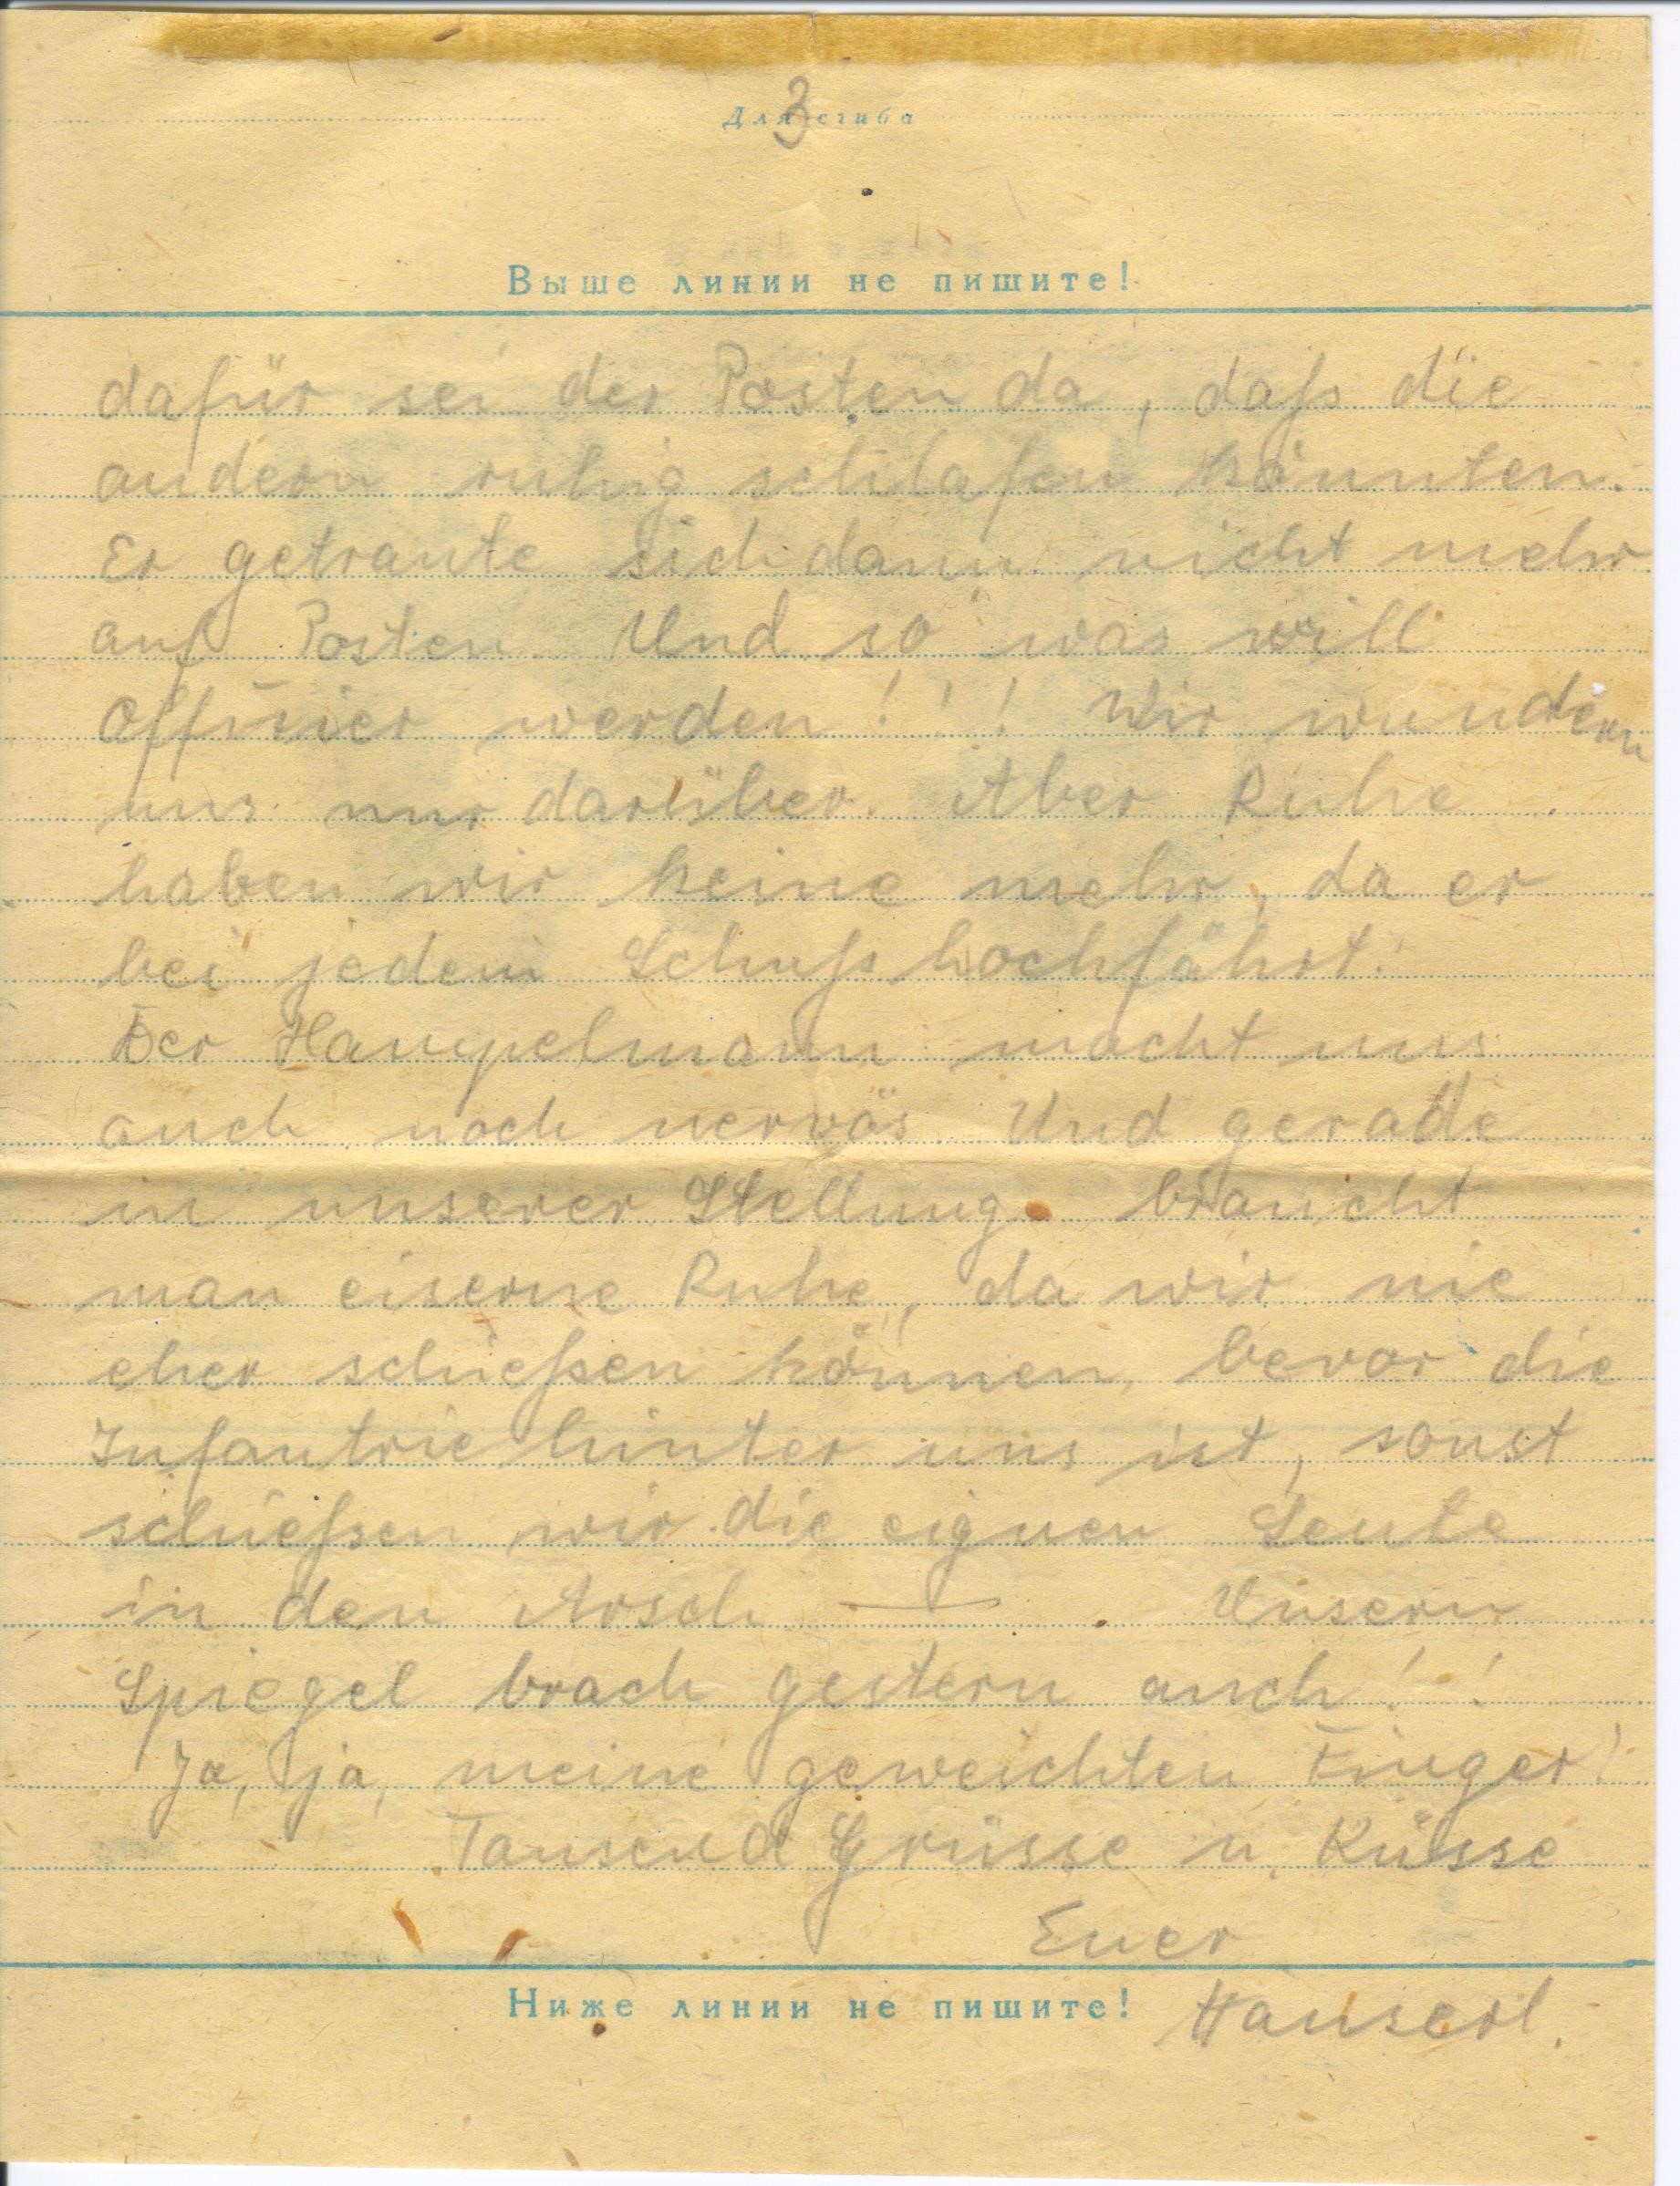 3
Для сгиба
Выше линии не пишите!
dafür sei der Posten da, daß die
andern ruhig schlafen könnten.
Er getraute sich dann nicht mehr
auf Posten. Und so was will
Offizier werden!!! Wir wundern
uns nur darüber. Aber Ruhe
haben wir keine mehr, da er
bei jedem Schuß hochfährt.
Der Hampelmann macht uns
auch noch nervös. Und gerade
in unserer Stellung braucht
man eiserne Ruhe, da wir nie
eher schießen können, bevor die
Infantrie hinter uns ist, sonst
schießen wir die eignen Leute
in den Arsch — . Unsern
Spiegel brach gestern auch!!
Ja, ja, meine geweichten Finger!
Tausend Grüsse u. Küsse
Euer
Ниже линии не пишите! Hanserl.